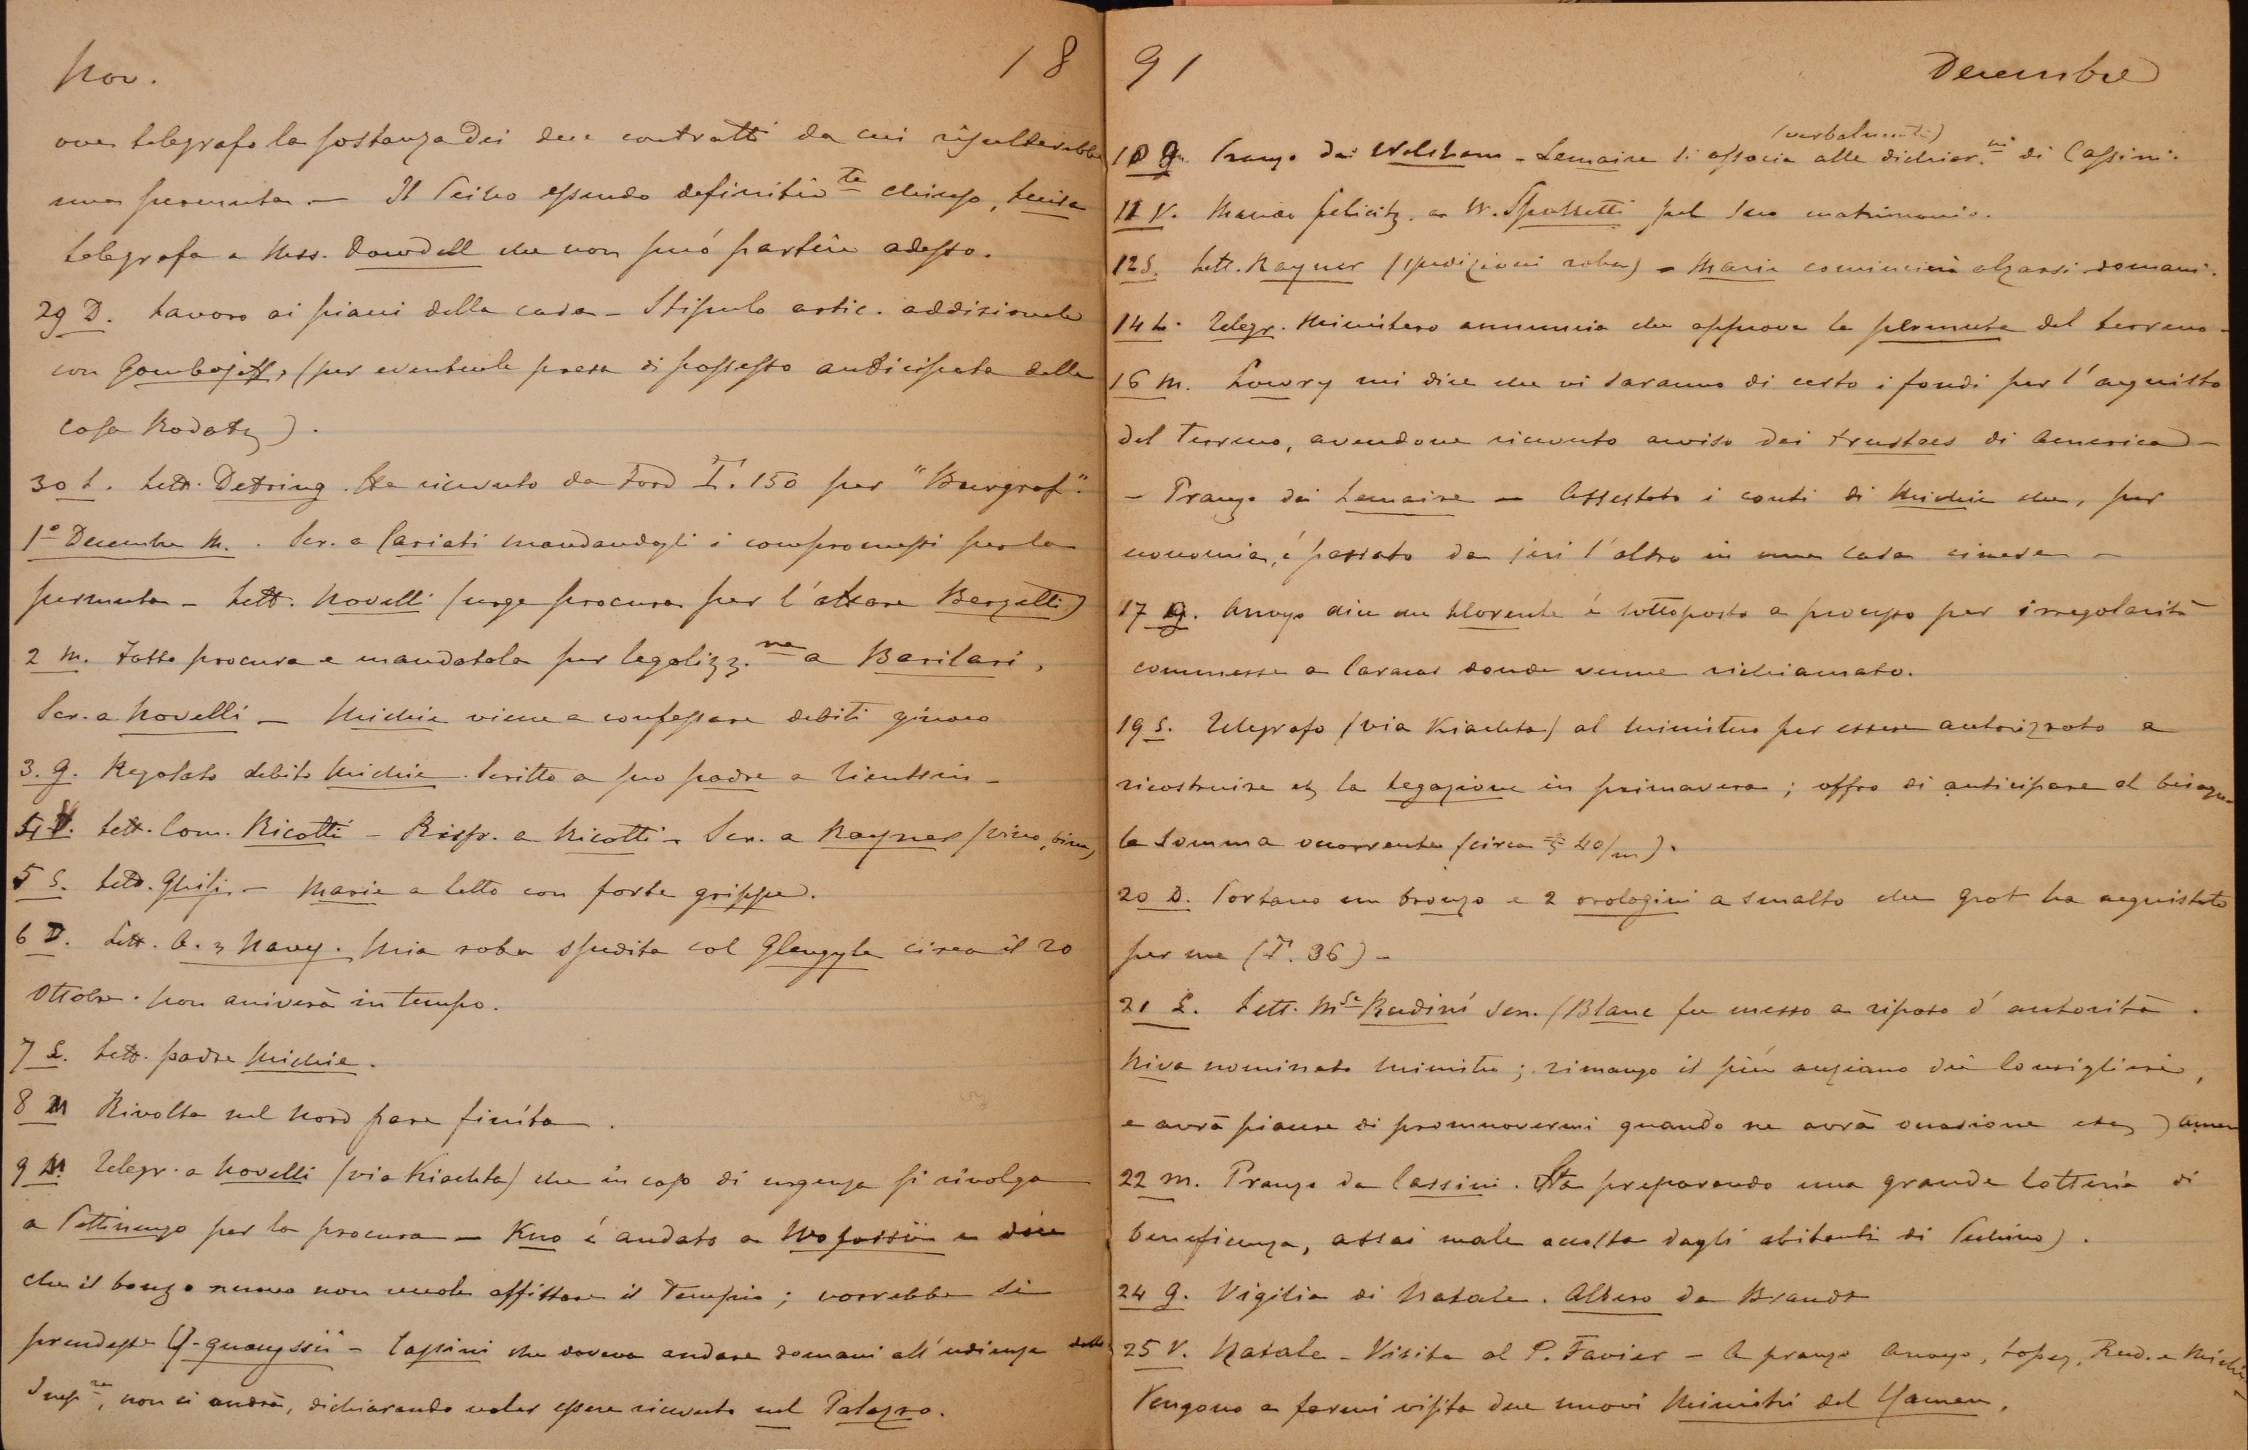 Nov.
18
ove telegrafo la sostanza dei due contratti da cui risulterebbe
una permuta. — Il Peiho essendo definitiv.te chiuso, Luisa
telegrafa a Miss. Dowdell che non può partire adesso.
29 D. Lavoro ai piani della casa — Stipulo artic. addizionale
con Gombojeff, (per eventuale presa di possesso anticipata della
casa Kodatz).
30 L. Lett. Detring. Ha ricevuto da Ford T. 150 per "Burgraf".
1° Decembre M. . Scr. a Cariati mandandogli i compromessi per la
permuta — Lett. Novelli (urge procura per l'affare Berzetti)
2 M. Fatto procura e mandatola per legalizz.ne a Barilari,
Scr. a Novelli — Michie viene a confessare debiti giuoco
3. G. Regolato debito Michie. Scritto a suo padre a Tientsin —
4 V. Lett. Com. Ricotti — Risp. a Ricotti — Scr. a Rayner (vino, birra)
5 S. Lett. Ghisi — Maria a letto con forte grippe.
6 D. Lett. A. & Navy. Mia roba spedita col Glengyle circa il 20
Ottobre. Non arriverà in tempo.
7 L. Lett. padre Michie.
8 M Rivolta nel Nord pare finita .
9 M. Telegr. a Novelli (via Kiachta) che in caso di urgenza si rivolga
a Pettinengo per la procura — Kuo é andato a Wofossü e dice
che il bonzo nuovo non vuole affittare il Tempio; vorrebbe si
prendesse Y-quangssü — Cassini che doveva andare domani all'udienza dello
Imp.re, non ci andrà, dichiarando voler essere ricevuto nel Palazzo.
91
Decembre
(verbalmente)
10 G. Pranzo dai Walsham — Lemaire si associa alle dichiar.ni di Cassini.
11 V. Mando felicitz. a W. Spassetti pel suo matrimonio.
12 S. Lett. Rayner (spedizioni roba) — Maria comincierà alzarsi domani.
14 L. Telegr. Ministero annuncia che approva la permuta del terreno —
16 M. Lowry mi dice che vi saranno di certo i fondi per l'acquisto
del terreno, avendone ricevuto avviso dei trustees di America —
— Pranzo dai Lemaire — Assestato i conti di Michie che, per
economia, é passato da jeri l'altro in una casa cinese —
17 G. Arroyo dice che Llorente é sottoposto a processo per irregolarità
commesse a Caracas donde venne richiamato.
19 S. Telegrafo (via Kiachta) al Ministro per essere autorizzato a
ricostruire etz la Legazione in primavera; offro di anticipare al bisogno
la somma occorrente (circa $ 40/m).
20 D. Portano un bronzo e 2 orologini a smalto che Grot ha acquistato
per me (T. 36) —
21 L. Lett. M.se Rudiní Sen. (Blanc fu messo a riposo d'autorità .
Riva nominato Ministro; rimango il più anziano dei Consiglieri,
e avrà piacere di promuovermi quando ne avrà occasione etc) amen
22 M. Pranzo da Cassini. Sta preparando una grande lotteria di
beneficenza, assai male accolta dagli abitanti di Pechino).
24 G. Vigilia di Natale. Albero da Brandt
25 V. Natale — Visita al P. Favier — A pranzo Arroyo, Lopez, Rud. e Michie
Vengono a farmi visita due nuovi Ministri del Yamen.